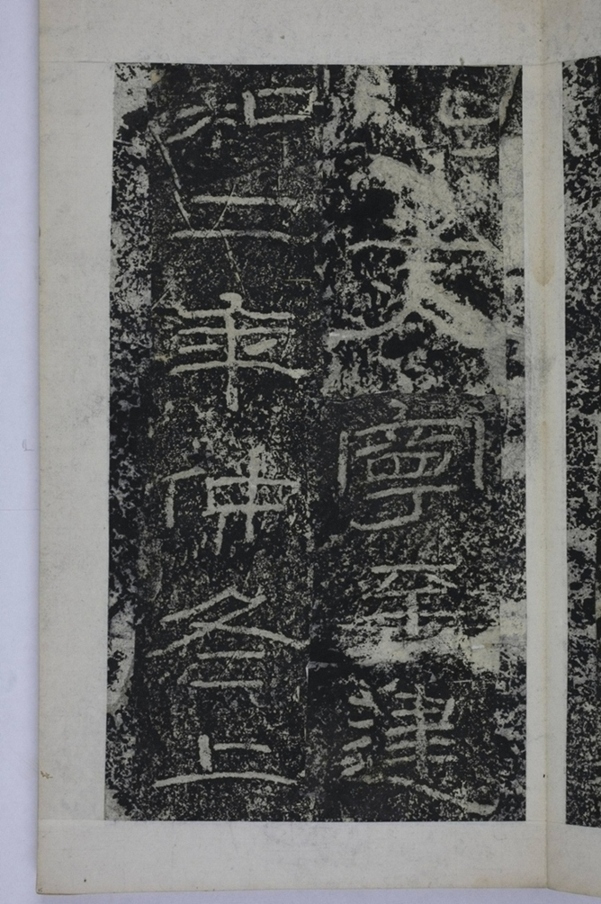 艾寧至建
和二年仲冬上